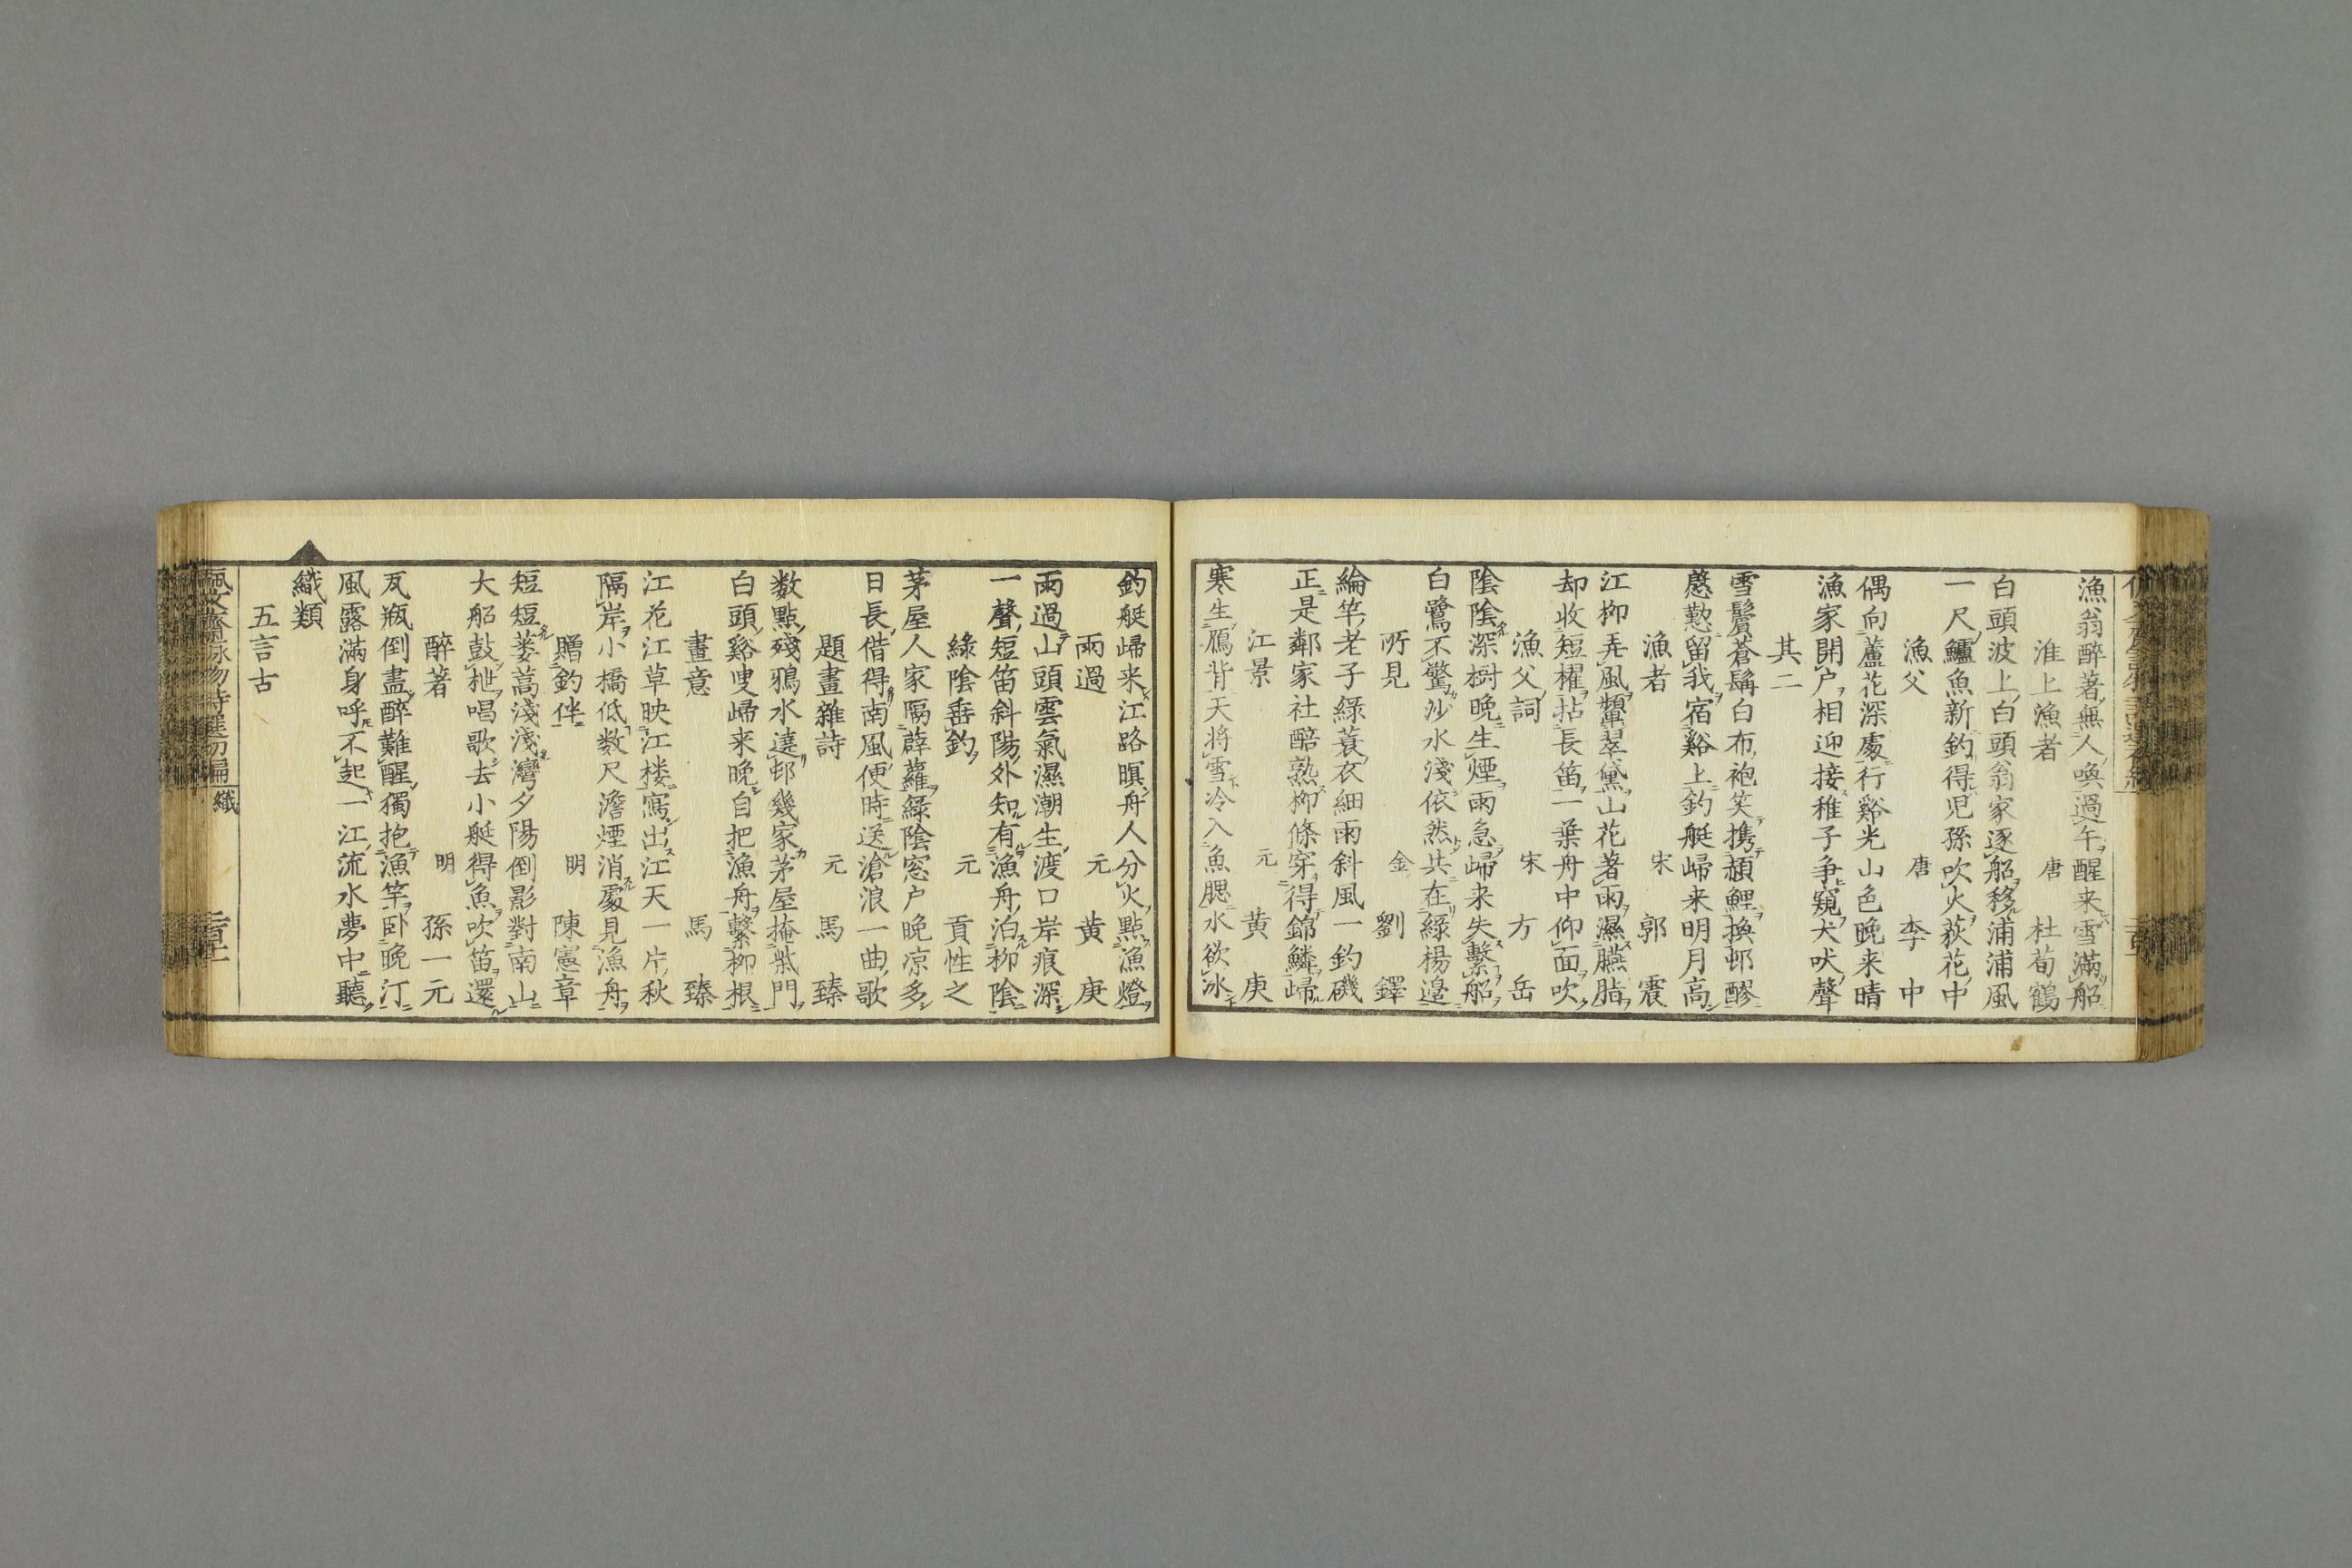 漁翁醉著無人喚過午醒来雪滿船
淮上漁者 唐 杜荀鶴
白頭波上白頭翁家逐船移浦浦風
一尺鱸魚新釣得児孫吹火荻花中
漁父 唐 李中
偶向蘆花深處行谿光山色晚来晴
漁家開户相迎接稚子争窺犬吠聲
其二
雪鬢蒼髯白布袍笑携赬鯉換邨醪
慇懃留我宿谿上釣艇歸来明月高
漁者 宋 郭震
江柳弄風顰翠黛山花著雨濕臙脂
却收短櫂拈長笛一葉舟中仰面吹
漁父詞 宋 方岳
陰陰深樹晚生煙雨急歸来失繫船
白鷺不驚沙水淺依然共在綠楊邉
所見 金 劉鐸
綸竿老子綠蓑衣細雨斜風一釣磯
正是鄰家社醅熟柳條穿得錦鱗歸
江景 元 黄庚
寒生鴈背天将雪冷入魚腮水欲冰
釣艇歸来江路暝舟人分火點漁燈
雨過 元 黄庚
雨過山頭雲氣濕潮生渡口岸痕深
一聲短笛斜陽外知有漁舟泊柳陰
綠陰垂釣 元 貢性之
茅屋人家隔薜蘿綠陰窓户晚凉多
日長借得南風便時送滄浪一曲歌
題畫雜詩 元 馬臻
数點殘鴉水遶邨幾家茅屋掩柴門
白頭谿叟歸来晚自把漁舟繫柳根
畫意 馬臻
江花江草映江楼寫出江天一片秋
隔岸小橋低数尺澹煙消處見漁舟
贈釣伴 明 陳憲章
短短蔞蒿淺淺灣夕陽倒影對南山
大船鼓枻唱歌去小艇得魚吹笛還
醉著 明 孫一元
瓦瓶倒盡醉難醒獨抱漁竿卧晚汀
風露滿身呼不起一江流水夢中聽
織類
五言古
佩文齋詠物詩選初編 織